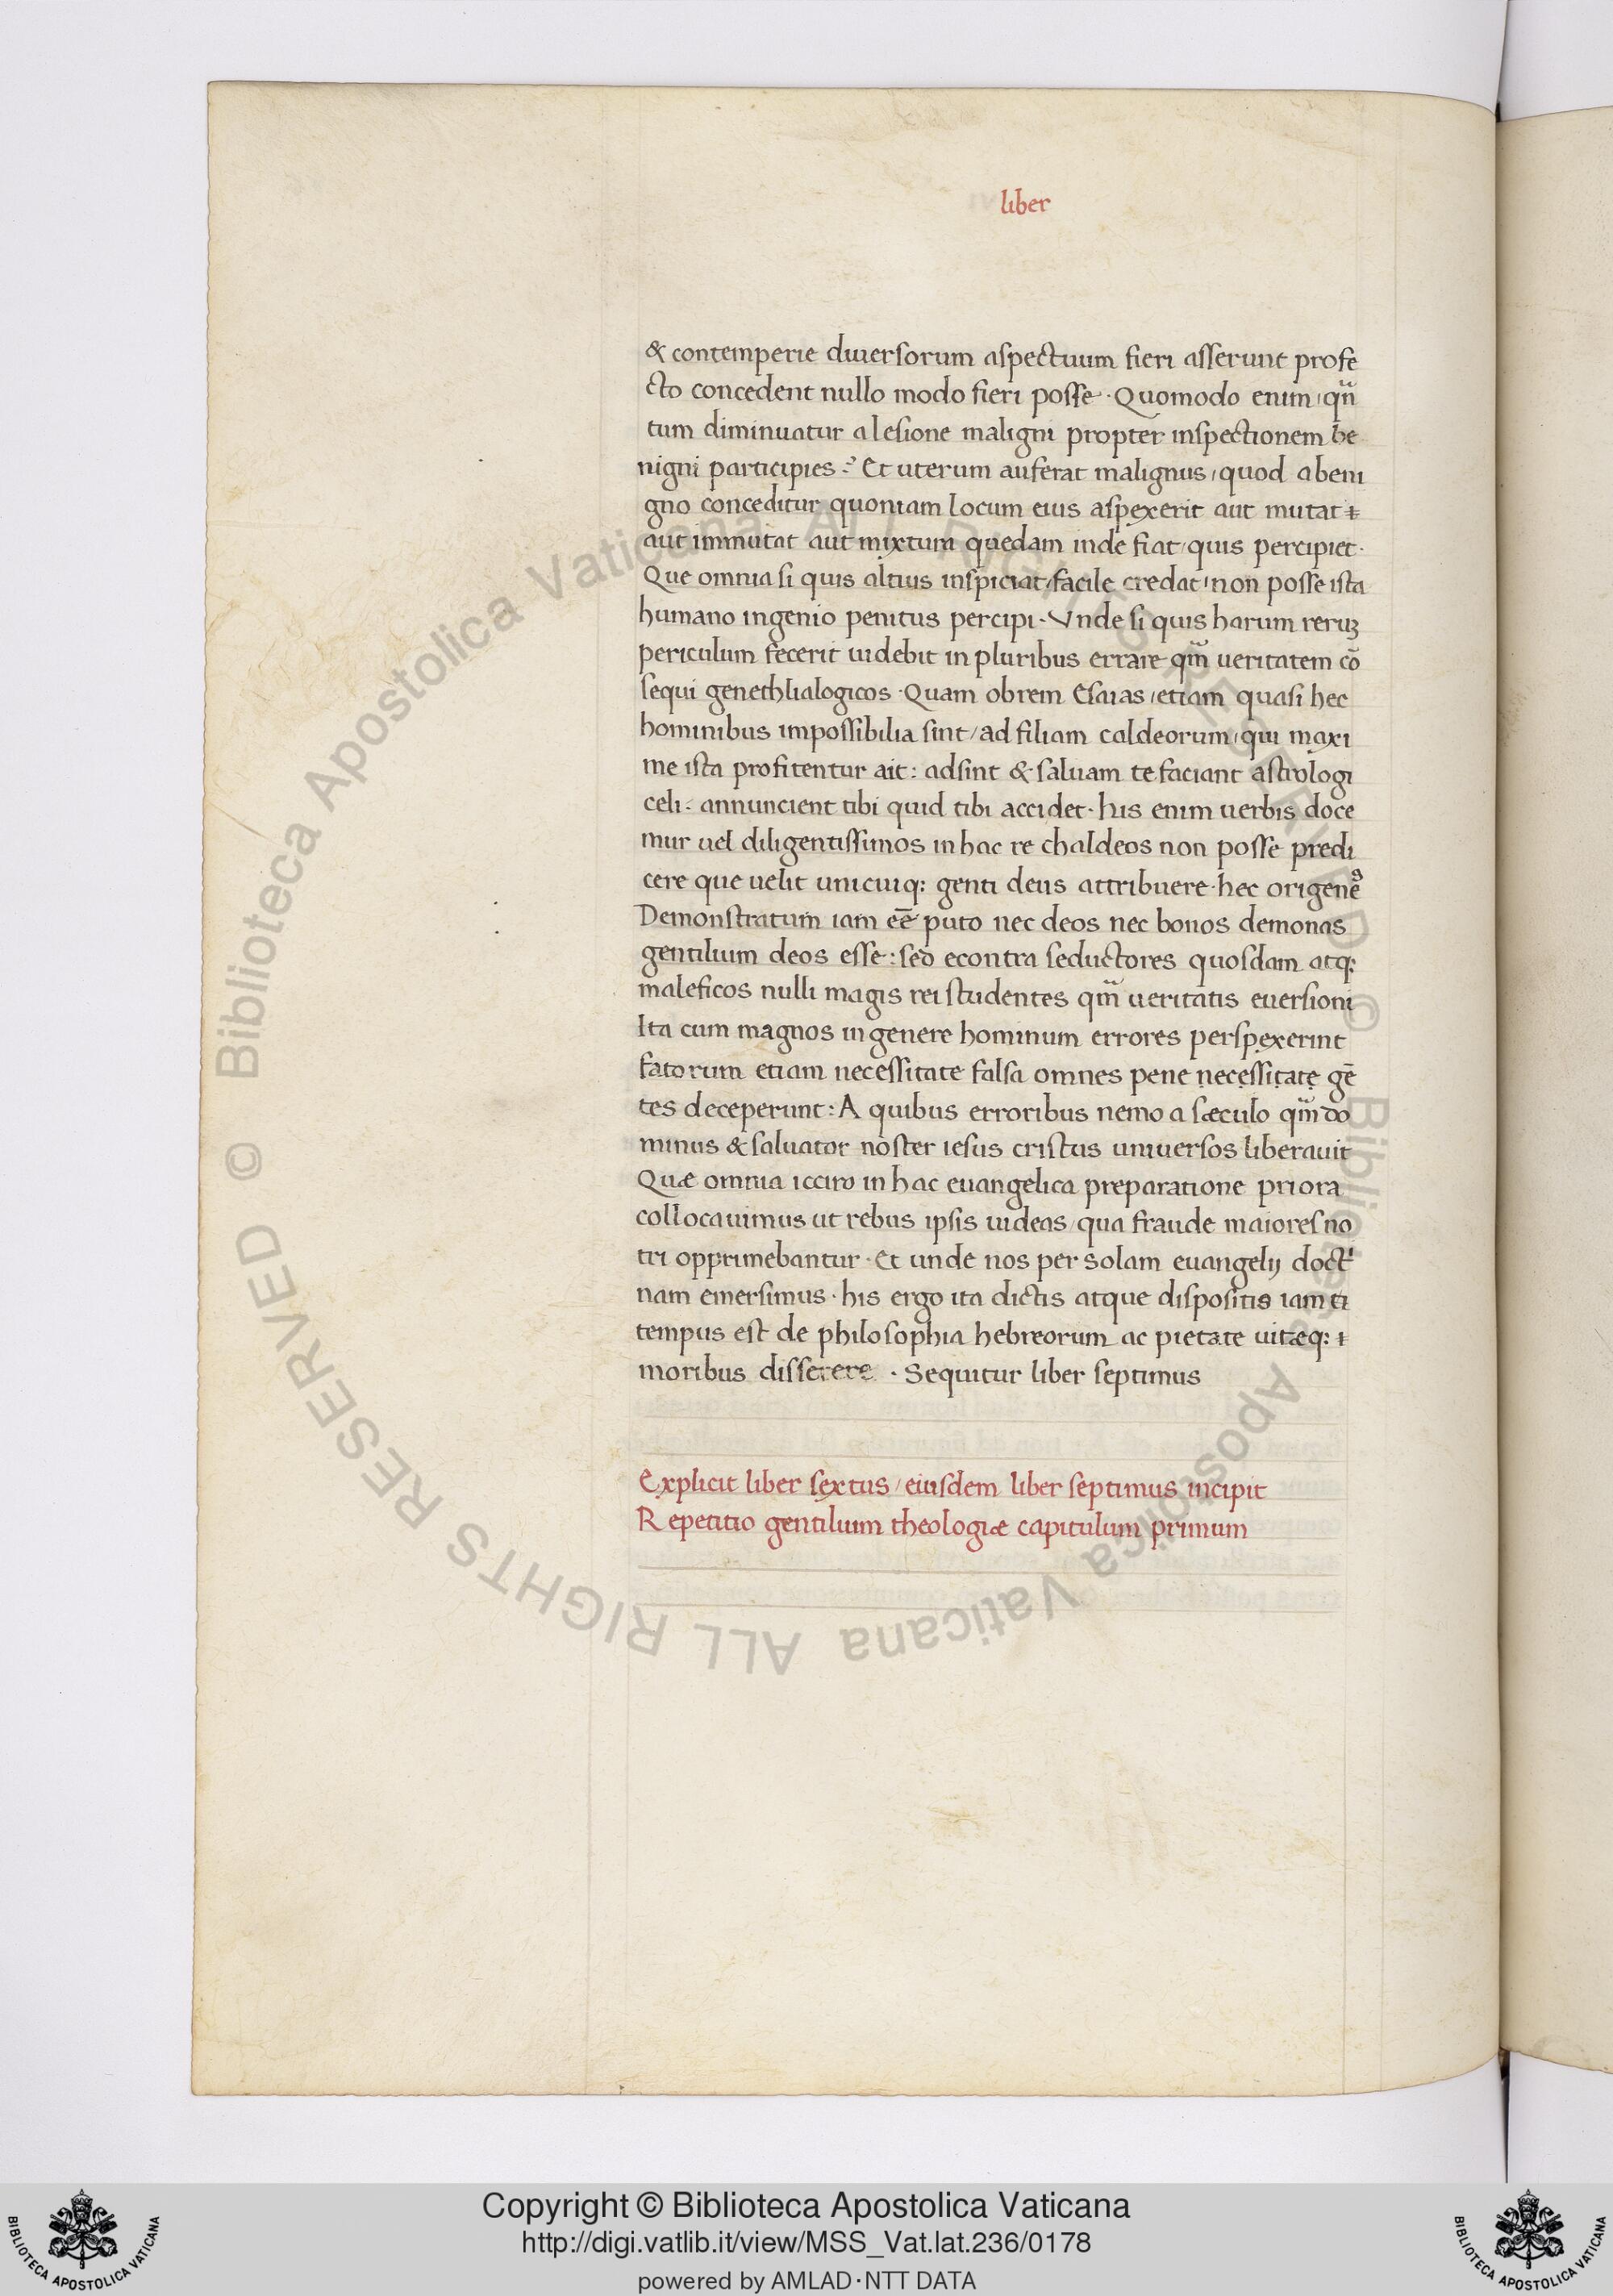 liber
& contemperie diuersorum aspectuum fieri asserunt profe
cto concedent nullo modo fieri posse · Quomodo enim, qũ
tum diminuatur a lesione maligni propter inspectionem be
nigni participies ? Et uterum auferat malignus, quod a beni
gno conceditur quoniam locum eius aspexerit aut mutat ⁊
aut immutat aut mixtura quedam inde fiat, quis percipiet ·
Que omnia si quis altius inspiciat, facile credat, non posse ista
humano ingenio penitus percipi · Vnde si quis harum reruꝫ
periculum fecerit uidebit in pluribus errare qm̃ ueritatem cõ
sequi genethlialogicos · Quam obrem Esaias, etiam quasi hec
hominibus impossibilia sint, ad filiam caldeorum, qui maxi
me ista profitentur ait : adsint & saluam te faciant astrologi
celi : annuncient tibi quid tibi accidet · his enim uerbis doce
mur uel diligentissimos in hac re chaldeos non posse predi
cere que uelit unicuiq: genti deus attribuere · hec origenes
Demonstratum iam eē puto nec deos nec bonos demonas
gentilium deos esse : sed econtra seductores quosdam atq:
maleficos nulli magis rei studentes qm̃ ueritatis euersioni
Ita cum magnos in genere hominum errores perspexerint
fatorum etiam necessitate falsa omnes pene necessitate gē
tes deceperunt : A quibus erroribus nemo a sæculo qm̃ do
minus & saluator noster iesus cristus uniuersos liberauit
Quæ omnia icciro in hac euangelica preparatione priora
collocauimus ut rebus ipsis uideas, qua fraude maiores no
tri opprimebantur · Et unde nos per solam euangelij doctⁱ
nam emersimus · his ergo ita dictis atque dispositis iam ti
tempus est de philosophia hebreorum ac pietate uitæq: ⁊
moribus disserere · Sequitur liber septimus
Explicit liber sextus, eiusdem liber septimus incipit
Repetitio gentilium theologiæ capitulum primum
© Biblioteca Apostolica Vaticana ALL RIGHTS RESERVED © Biblioteca Apostolica Vaticana ALL RIGHTS RESERVED
Copyright © Biblioteca Apostolica Vaticana
http://digi.vatlib.it/view/MSS_Vat.lat.236/0178
powered by AMLAD·NTT DATA
BIBLIOTECA APOSTOLICA VATICANA
BIBLIOTECA APOSTOLICA VATICANA